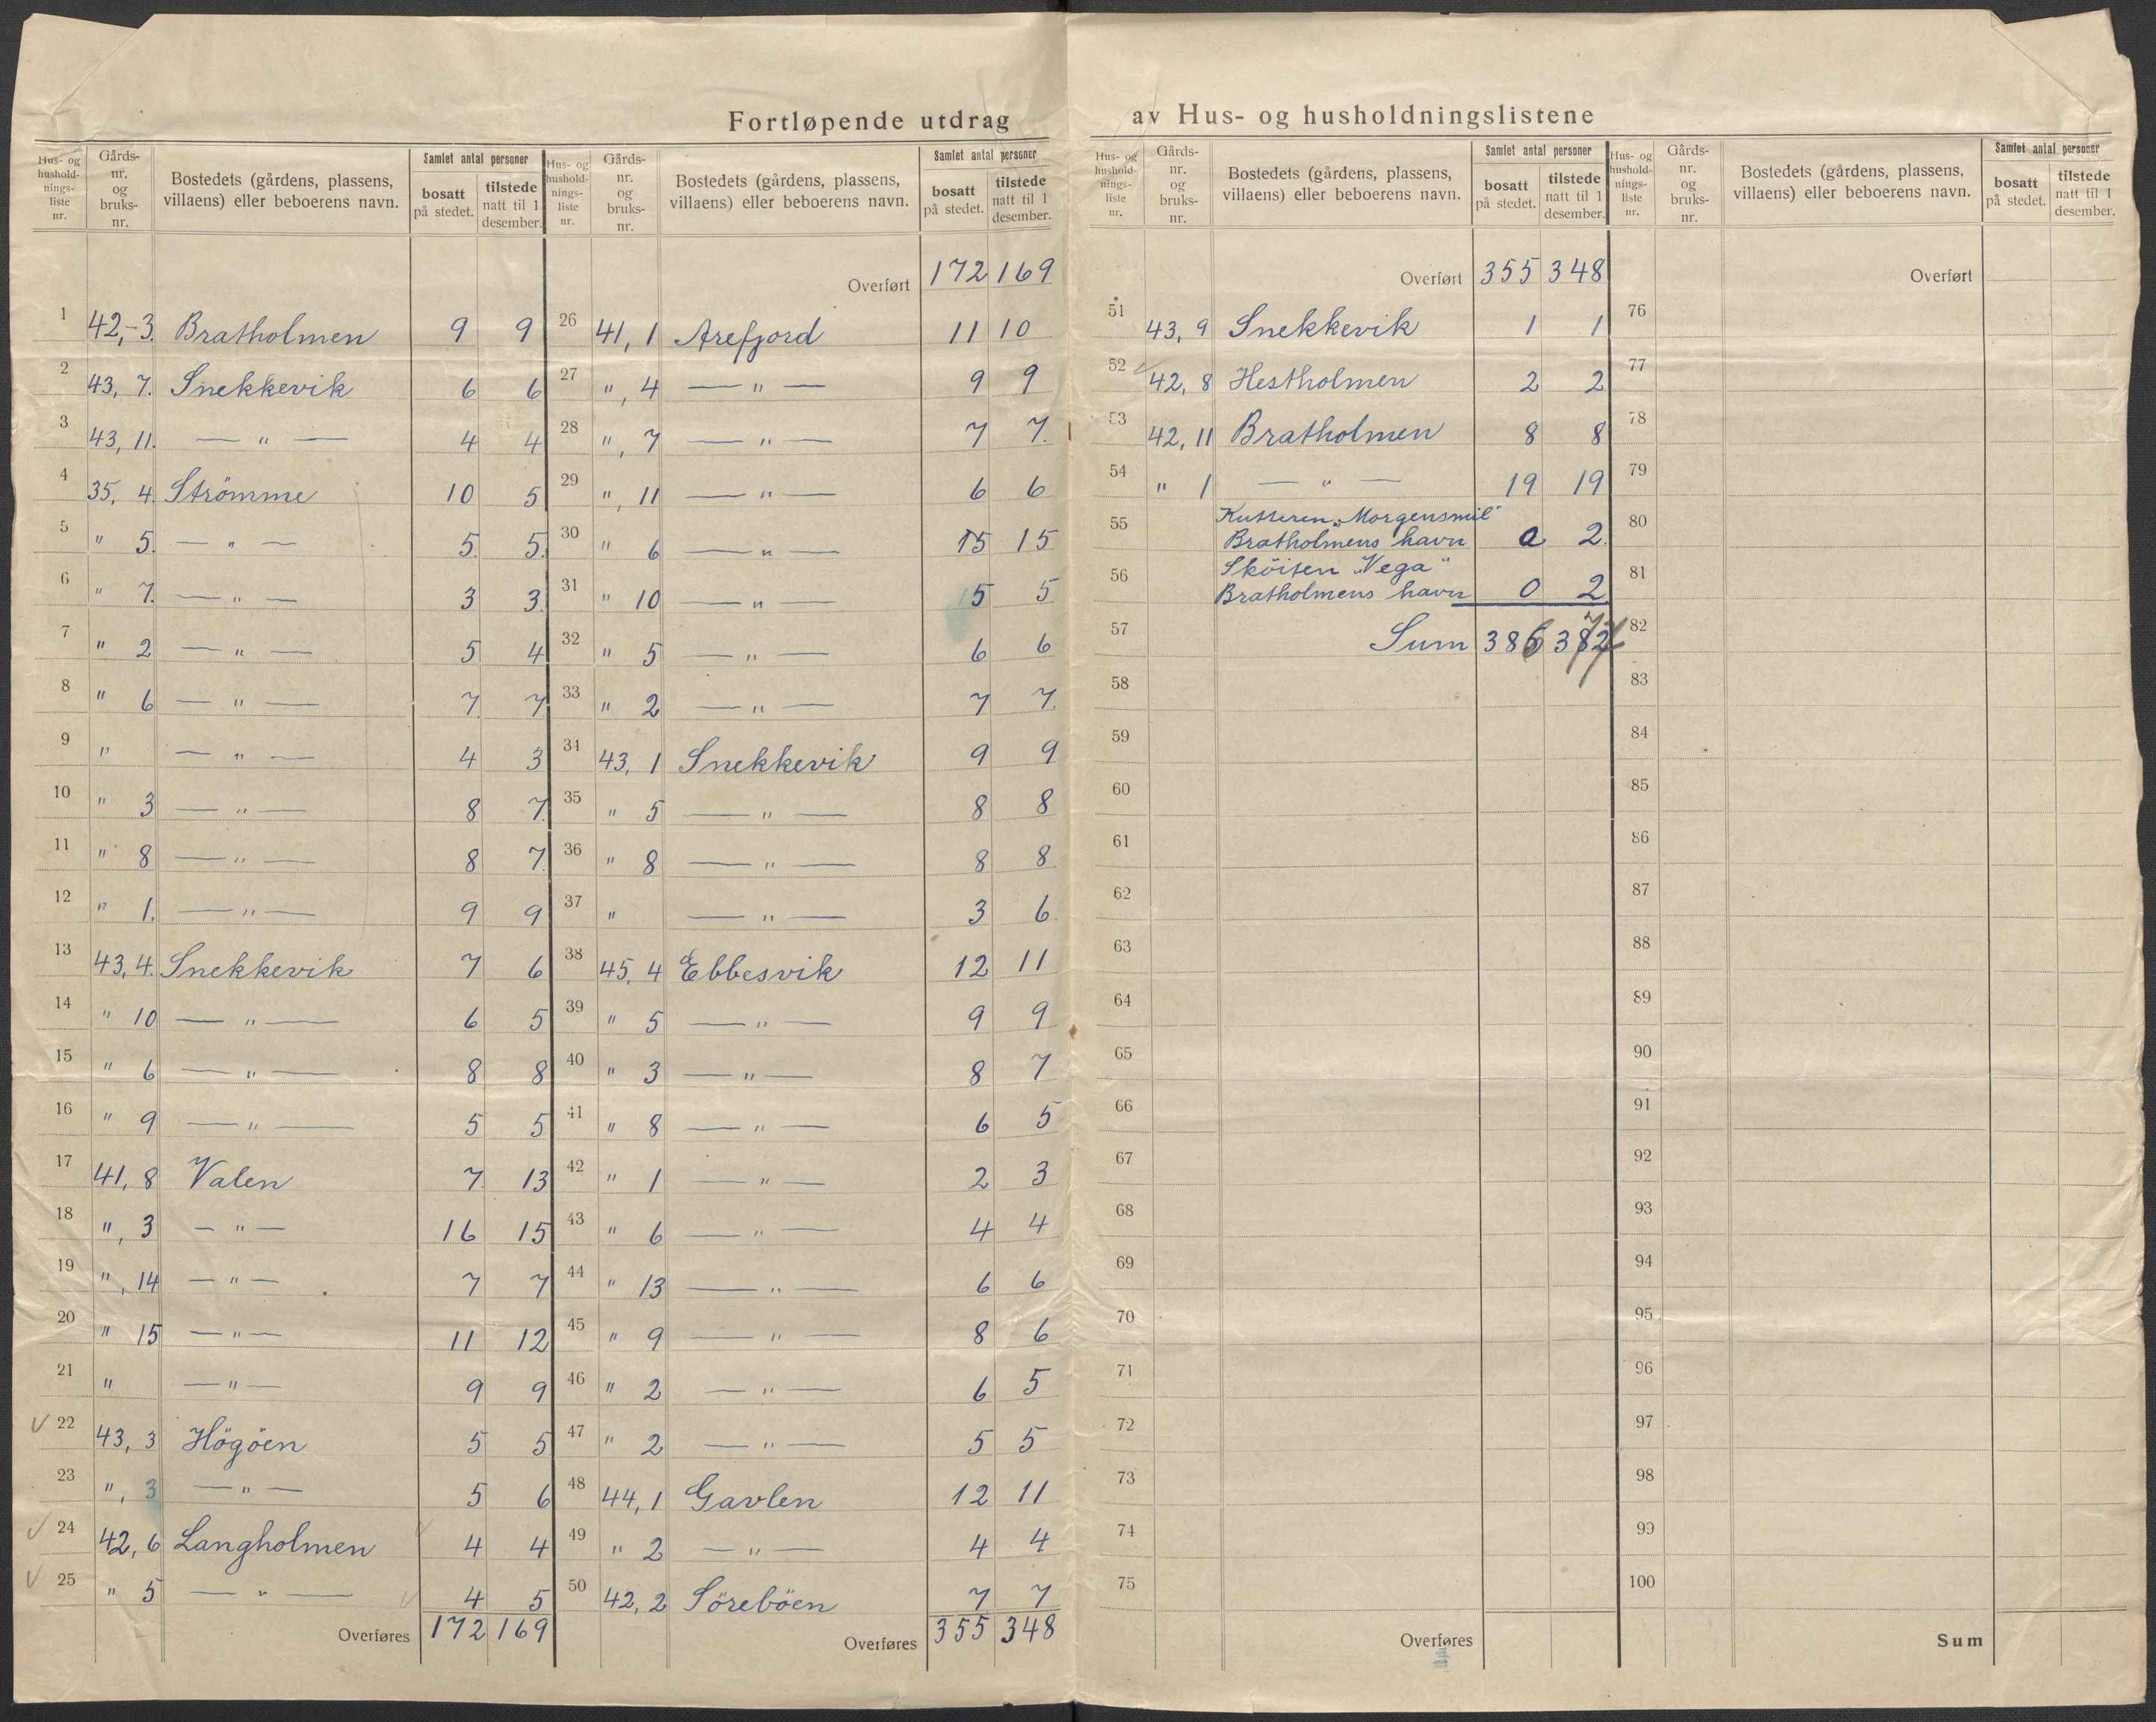 Fortløpende utdrag av Hus- og husholdningslistene
Hus- og hushold-nings-liste nr. | Gårds-nr. og bruks-nr. | Bostedets (gårdens, plassens, villaens) eller beboerens navn. | Samlet antal personer | bosatt på stedet. | tilstede natt til 1 desember.
1 42,-3. Bratholmen 9 9
2 43, 7. Snekkevik 6 6
3 43, 11. — " — 4 4
4 35, 4. Strömme 10 5
5 " 5. — " — 5. 5.
6 " 7. — " — 3 3.
7 " 2 — " — 5 4
8 " 6 — " — 7 7
9 " — " — 4 3
10 " 3 — " — 8 7.
11 " 8 — " — 8 7
12 " 1. — " — 9 9
13 43, 4. Snekkevik 7 6
14 " 10 — " — 6 5
15 " 6 — " — 8 8
16 " 9 — " — 5 5
17 41, 8 Valen 7. 13
18 ", 3 — " — 16 15
19 ", 14 — " — 7 7
20 " 15 — " — 11 12
21 " — " — 9 9
22 43, 3 Högöen 5 5
23 ", 3 — " — 5 6
24 42, 6 Langholmen 4 4
25 " 5 — " — 4 5
Overføres 172 169
Hus- og hushold-nings-liste nr. | Gårds-nr. og bruks-nr. | Bostedets (gårdens, plassens, villaens) eller beboerens navn. | Samlet antal personer | bosatt på stedet. | tilstede natt til 1 desember.
Overført 172 169
26 41, 1 Arefjord 11 10
27 ", 4 — " — 9 9
28 ", 7 — " — 7 7.
29 ", 11 — " — 6 6
30 " 6 — " — 15 15
31 " 10 — " — 5 5
32 " 5 — " — 6 6
33 " 2 — " — 7 7.
34 43, 1 Snekkevik 9 9
35 " 5 — " — 8 8
36 " 8 — " — 8 8
37 " — " — 3 6
38 45, 4 Ebbesvik 12 11
39 " 5 — " — 9 9
40 " 3 — " — 8 7
41 " 8 — " — 6 5
42 " 1 — " — 2 3
43 " 6 — " — 4 4
44 " 13 — " — 6 6
45 " 9 — " — 8 6
46 " 2 — " — 6 5
47 " 2 — " — 5 5
48 44, 1 Gavlen 12 11
49 " 2 — " — 4 4
50 42, 2 Söreböen 7 7
Overføres 355 348
Hus- og hushold-nings-liste nr. | Gårds-nr. og bruks-nr. | Bostedets (gårdens, plassens, villaens) eller beboerens navn. | Samlet antal personer | bosatt på stedet. | tilstede natt til 1 desember.
Overført 355 348
51 43, 9 Snekkevik 1 1
52 42, 8 Hestholmen 2 2
53 42, 11 Bratholmen 8 8
54 " 1 — " — 19 19
55 Kutteren „Morgensmil"
Bratholmens havn 0 2.
56 Sköiten „Vega"
Bratholmens havn 0 2
57 Sum 385 382
58
59
60
61
62
63
64
65
66
67
68
69
70
71
72
73
74
75
Overføres
Hus- og hushold-nings-liste nr. | Gårds-nr. og bruks-nr. | Bostedets (gårdens, plassens, villaens) eller beboerens navn. | Samlet antal personer | bosatt på stedet. | tilstede natt til 1 desember.
Overført
76
77
78
79
80
81
82
83
84
85
86
87
88
89
90
91
92
93
94
95
96
97
98
99
100
Sum